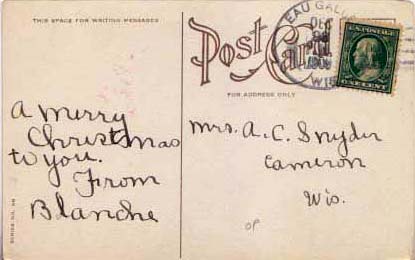 THIS SPACE FOR WRITING MESSAGES
Post Card
FOR ADDRESS ONLY
EAU GALLE
DEC
1909
WIS
U.S. POSTAGE
ONE CENT
A Merry
Christmas
to you.
From
Blanche
Mrs. A.C. Snyder
Cameron
Wis.